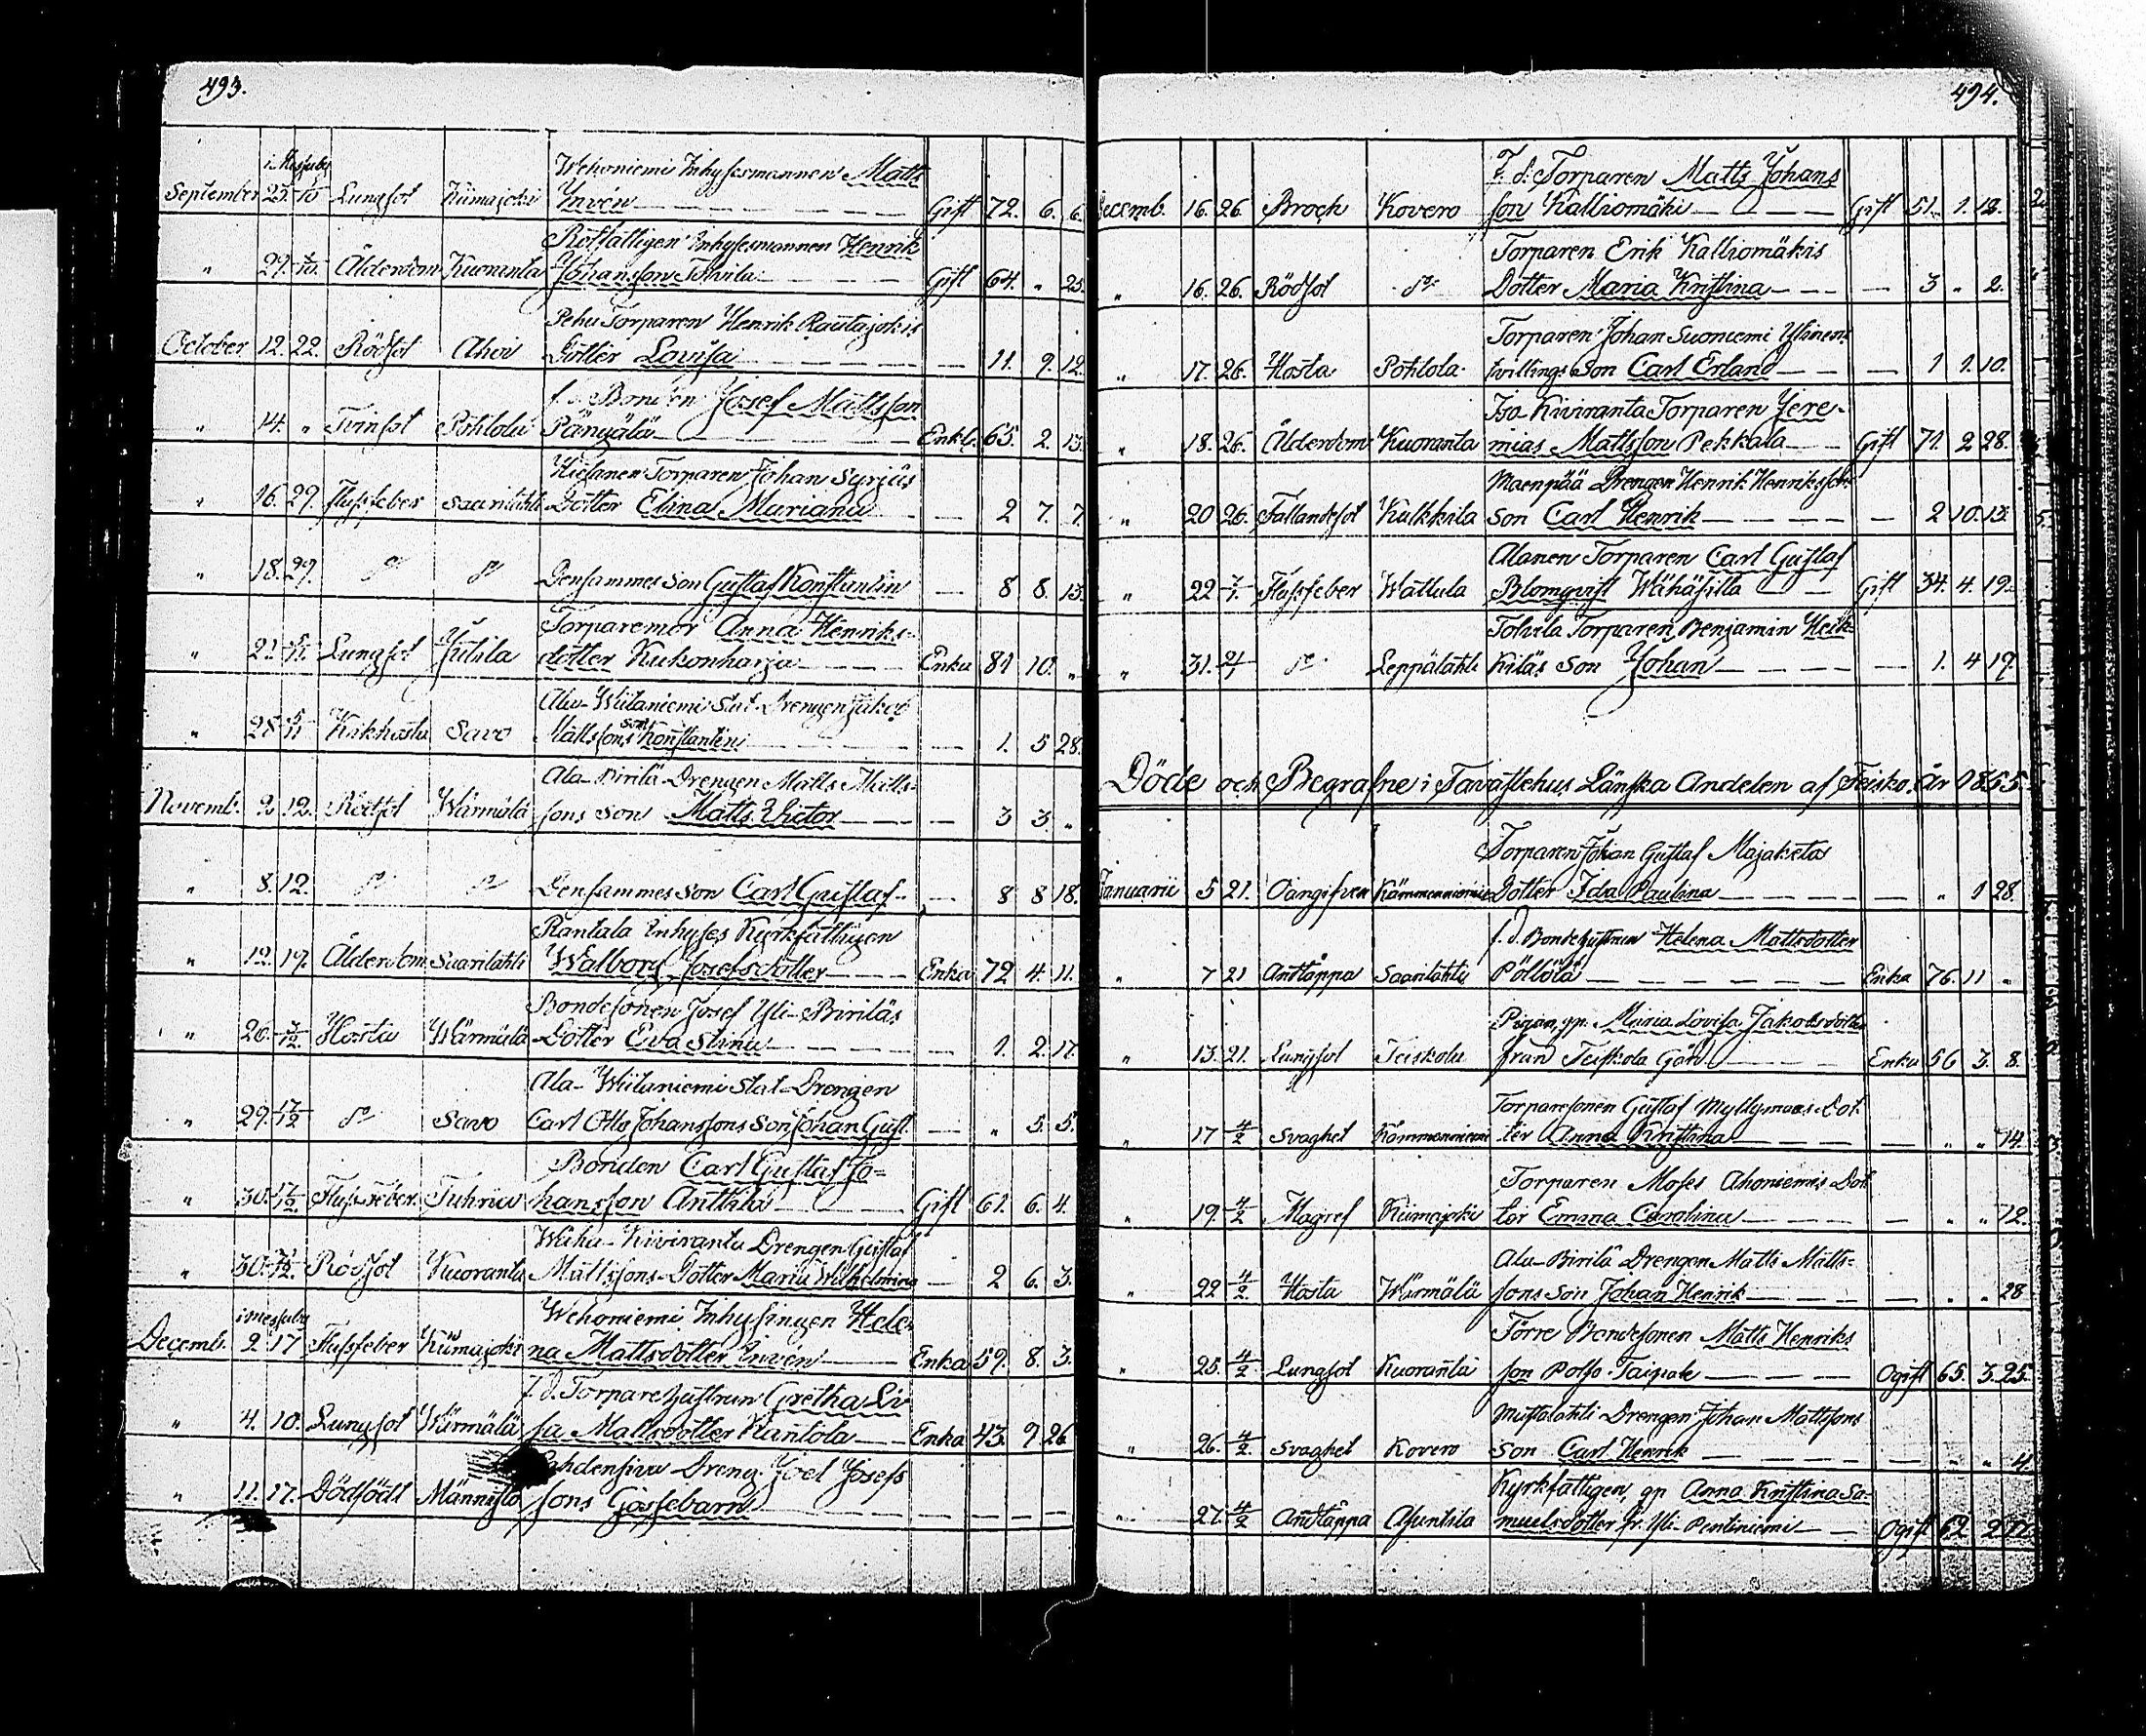 493.
i Messuby
Wehoniemi Inhysesmannen Matts
September 25. 10 Lungsot Kiimajoki Inven Gift 72. 6. 6.
Rotfattigen Inhysesmannen Henrik
" 29. /10. Ålderdom Kuoranta Johansson Tolvila Gift 64. " 25.
Pehu Torparen Henrik Rautajokis
October 12. 22. Rödsot Ahoi Dotter Lovisa — 11. 9. 12.
f. d. Bonden Josef Mattsson
" 14. " Tvinsot Pohtola Pänyälä Enkl. 65. 2. 13.
Torparen Johan Syrjäs
" 16. 29. Flussfeber Saarilahti Dotter Elina Mariana — 2 7. 7.
" 18. 29. do do Densammes son Gustaf Konstantin — 8 8. 13.
Torparemor Anna Henriks-
" 21. /11. Lungsot Jutila dotter Kukonharja Enka 81 10. "
Ala-Wiitaniemi Stat-Drengen Jakob
" 28 5/11 Kikhosta Savo Mattssons son Konstantin — 1. 5 28.
Ala-Pirilä Drengen Matts Matts-
Novemb. 2. 12. Rödsot Wärmälä sons Son Matts Victor — 3 3. "
" 8. 12. do do Densammes son Carl Gustaf — 8 8 18.
Rantala Inhyses Kyrkfattigen
" 12. 19. Ålderdom Saarilahti Walborg Josefsdotter Enka 72 4. 11.
Bondesonen Josef Yli-Piriläs
" 26. 3/12. Hosta Wärmälä Dotter Eva Stina — 1. 2. 17.
Ala-Wiitaniemi Stat-Drengen
" 29. 17/12 do Savo Carl Otto Johanssons Son Johan Gust. — " 5. 5.
Bonden Carl Gustaf Jo-
" 30. 17/12. Flussfeber Tuhria hansson Anttila Gift 61. 6. 4.
Wähä-Kiviranta Drengen Gustaf
" 30. /12. Rödsot Kuoranta Mattssons Dotter Maria Wilhelmina — 2 6. 3.
i Messuby Wehoniemi Inhysingen Hele-
Decemb. 2 17 Flussfeber Kiimajoki na Mattsdotter Inven Enka 59. 8. 3.
f. d. Torparehustrun Gretha Li-
" 4. 10. Lungsot Wärmälä sa Mattsdotter Rantola Enka 43. 9 26.
Lahdensivu Dreng. Joel Josefs
" 11. 17. Dödfödt Männistö sons Gossebarn — — — —
494.
F. d. Torparen Matts Johans
Decemb. 16. 26. Broch Kovero son Kalliomäki Gift 51. 1. 12.
Torparen Erik Kalliomäkis
" 16. 26. Rödsot do Dotter Maria Kristina — 3 " 2.
Torparen Johan Suoniemi Ylinens
" 17. 26. Hosta Pohtola tvillings Son Carl Erland — 1 1. 10.
Iso Kiviranta Torparen Jere-
" 18. 26. Ålderdom Kuoranta mias Mattsson Pekkala Gift 71. 2 28.
Maenpää Drengen Henrik Henrikssons
" 20 26. Fallandsot Kulkkila son Carl Henrik — 2 10. 13.
Alanen Torparen Carl Gustaf
" 22 7/1. Flussfeber Wattula Blomqvist Wähäsilta Gift 34. 4. 19.
Tolvila Torparen Benjamin Heik-
" 31. 21/1 do Leppälahti kiläs son Johan — 1. 4 19.
Döde och Begrafne i Tavastehus Länska Andelen af Teisko. År 1865.
Torparen Johan Gustaf Majaketas
Januarii 5 21. Oangifven Kämmenniemi Dotter Ida Paulina — " 1 28.
f. d. Bondehustrun Helena Mattsdotter
" 7 21 Andtäppa Saarilahti Pöllölä Enka 76. 11 "
Pigan, gp. Maria Lovisa Jakobsdotter
" 13. 21. Lungsot Teiskola från Teiskola Gård Enka 56 3. 8.
Torparesonen Gustaf Myllymaas Dot-
" 17 4/2 Svaghet Kämmenniemi ter Anna Kristina — " " 14.
Torparen Moses Ahoniemis Dot
" 19. 4/2 Magref Kiimajoki ter Emma Carolina — " " 12.
Ala-Pirilä Drengen Matts Matts-
" 22 4/2. Hosta Wärmälä sons Son Johan Henrik — " " 28
Törre Bondesonen Matts Henriks
" 25. 4/2 Lungsot Kuoranta son Polso-Taipale Ogift 65. 3. 25.
Mustalahti Drengen Johan Mattssons
" 26. 4/2. Svaghet Kovero Son Carl Henrik — " " 4.
Kyrkfattigen, gp Anna Kristina Sa-
" 27. 4/2 Andtäppa Asuntila muelsdotter fr. Yli-Pentiniemi — Ogift 62 2